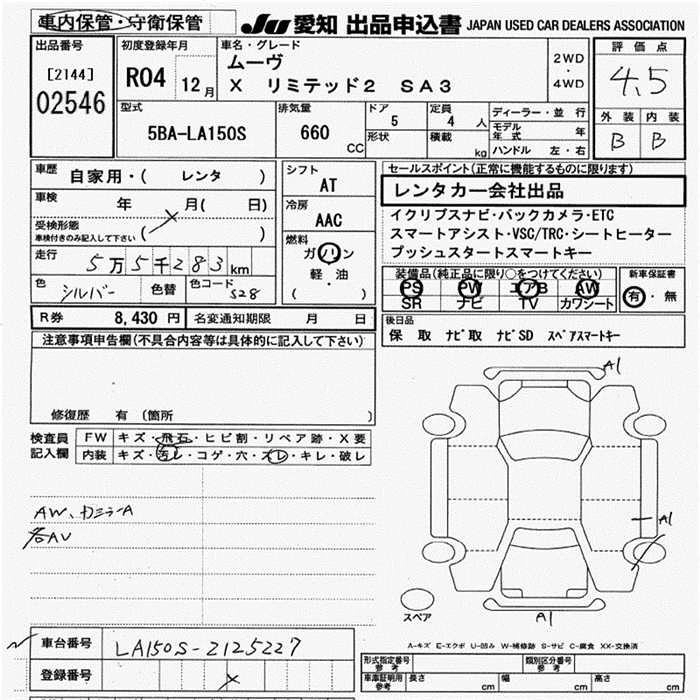 車内保管・守衛保管
JU 愛知 出品申込書 JAPAN USED CAR DEALERS ASSOCIATION
出品番号
[2144]
02546
初度登録年月
R04 12月
車名・グレード
ムーヴ
X リミテッド2 SA3
2WD
・
4WD
評価点
4.5
外装 内装
B B
型式
5BA-LA150S
排気量
660 CC
ドア
5
形状
定員
4 人
積載
kg
ディーラー・並行
モデル年式 年
ハンドル 左・右
車歴 自家用・( レンタ )
車検 年 月( 日)
受検形態
車検付きのみ記入して下さい ( )
走行 5万5千283km
色 シルバー 色替 色コード S28
シフト
AT
冷房
AAC
燃料
ガソリン
軽・油
( )
セールスポイント(正常に機能するものに限ります)
レンタカー会社出品
イクリプスナビ・バックカメラ・ETC
スマートアシスト・VSC/TRC・シートヒーター
プッシュスタートスマートキー
装備品(純正品に限り○をつけてください)
PS PW エアB AW
SR ナビ TV カワシート
新車保証書
有・無
R券 8,430円 名変通知期限 月 日
後日品
保 取 ナビ取 ナビSD スペアスマートキー
注意事項申告欄(不具合内容等は具体的に記入して下さい)
修復歴 有(箇所 )
検査員記入欄
FW キズ・飛石・ヒビ割・リペア跡・X要
内装 キズ・汚レ・コゲ・穴・スレ・キレ・破レ
AW、カミラーA
各AU
A1
A1
A1
スペア
A-キズ E-エクボ U-凹み W-補修跡 S-サビ C-腐食 XX-交換済
車台番号 LA150S-2125227
登録番号 ×
形式指定番号 参考
類別区分番号 参考
車庫証明用参考 長さ cm 幅 cm 高さ cm